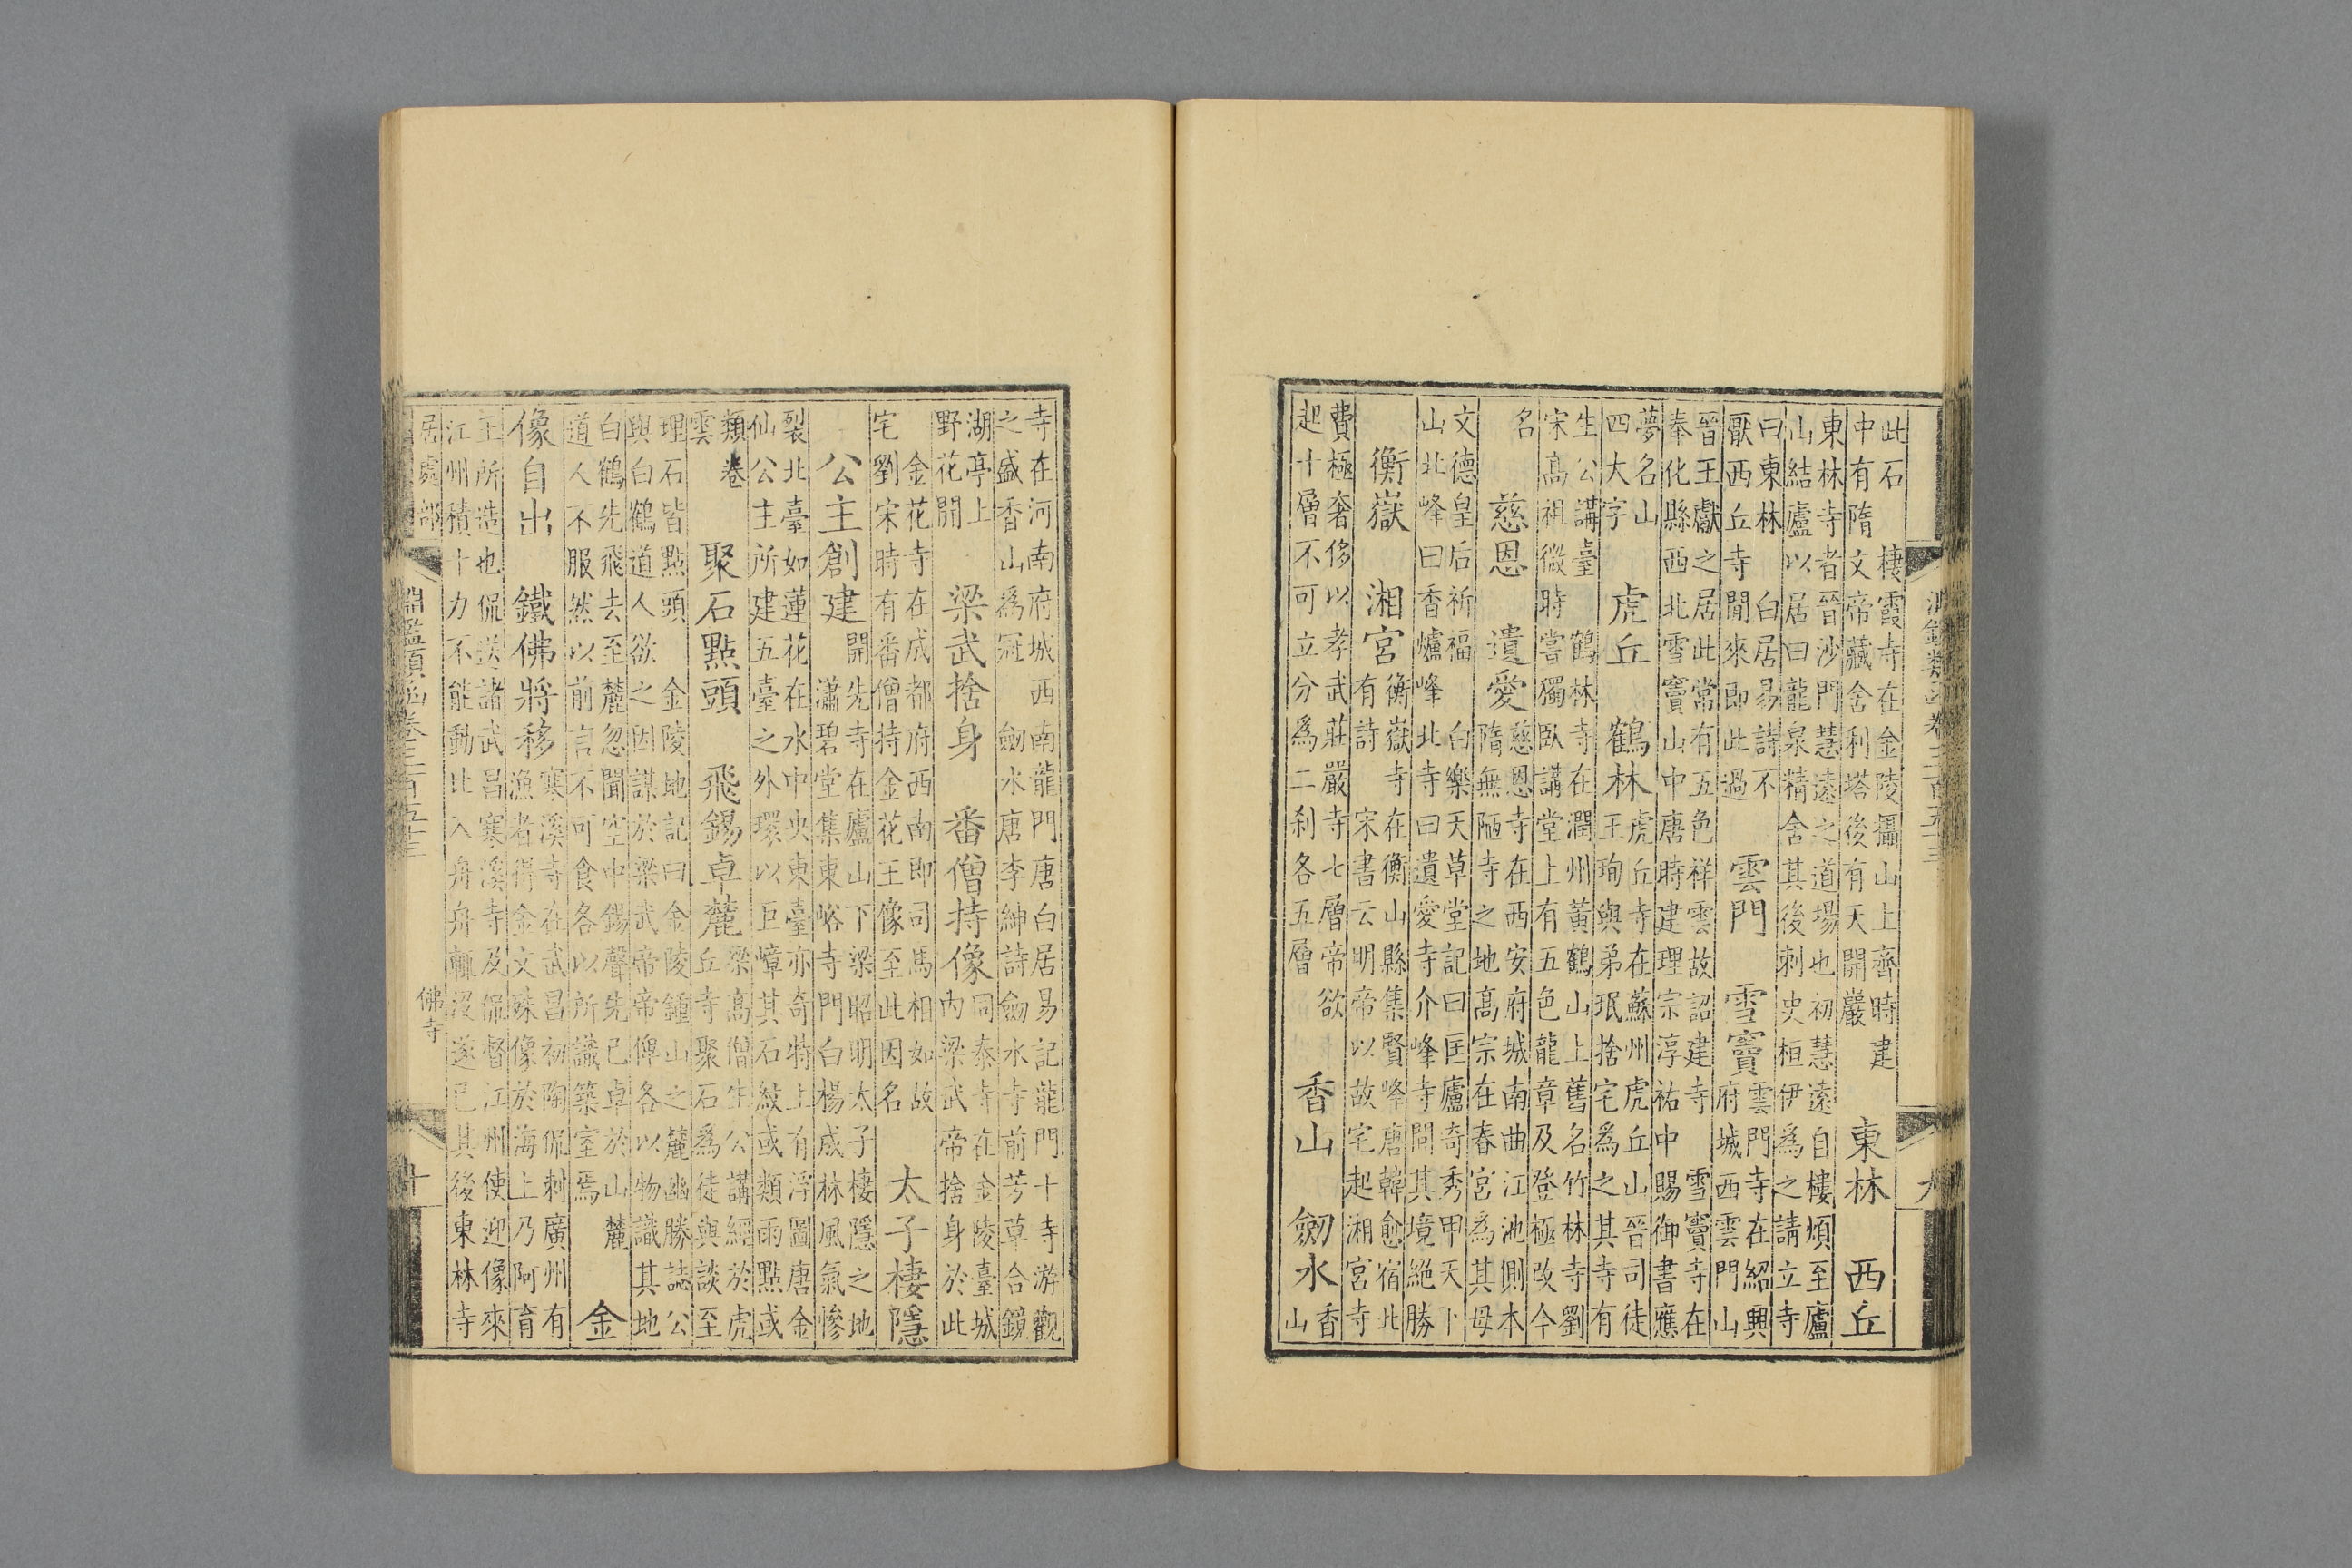 淵鑑類函卷三百五十三 九
此石 棲霞寺在金陵攝山上齊時建
中有隋文帝藏舍利塔後有天開巖
東林 西丘
東林寺者晉沙門慧遠之道場也初慧遠自樓煩至廬
山結廬以居曰龍泉精舍其後刺史桓伊為之請立寺
曰東林 白居易詩不
厭西丘寺閒來即此過
雲門 雪竇
雲門寺在紹興
府城西雲門山
晉王獻之居此常有五色祥雲故詔建寺 雪竇寺在
奉化縣西北雪竇山中唐時建理宗淳祐中賜御書應
夢名山
四大字
虎丘 鶴林
虎丘寺在蘇州虎丘山晉司徒
王珣與弟珉捨宅為之其寺有
生公講臺 鶴林寺在潤州黃鶴山上舊名竹林寺劉
宋髙祖微時嘗獨臥講堂上有五色龍章及登極改今
名
慈恩 遺愛
慈恩寺在西安府城南曲江池側本
隋無陋寺之地髙宗在春宮為其母
文德皇后祈福 白樂天草堂記曰匡廬奇秀甲天下
山北峰曰香爐峰北寺曰遺愛寺介峰寺間其境絕勝
衡嶽 湘宮
衡嶽寺在衡山縣集賢峰唐韓愈宿此
有詩 宋書云明帝以故宅起湘宮寺
費極奢侈以孝武莊嚴寺七層帝欲
起十層不可立分為二刹各五層
香山 劒水
香
山
寺在河南府城西南龍門唐白居易記龍門十寺游觀
之盛香山為冠 劒水唐李紳詩劒水寺前芳草合鏡
湖亭上
野花開
梁武捨身 番僧持像
同泰寺在金陵臺城
內梁武帝捨身於此
金花寺在成都府西南即司馬相如故
宅劉宋時有番僧持金花王像至此因名
太子棲隱
公主創建
開先寺在廬山下梁昭明太子棲隱之地
瀟碧堂集東峪寺門白楊成林風氣慘
裂北臺如蓮花在水中央東臺亦奇特上有浮圖唐金
仙公主所建五臺之外環以巨嶂其石紋或類雨點或
類卷
雲
聚石點頭 飛錫卓麓
梁髙僧生公講經於虎
丘寺聚石為徒與談至
理石皆點頭 金陵地記曰金陵鍾山之麓幽勝誌公
與白鶴道人欲之因謀於梁武帝帝俾各以物識其地
白鶴先飛去至麓忽聞空中錫聲先已卓於山麓
道人不服然以前言不可食各以所識築室焉
金
像自出 鐵佛將移
寒溪寺在武昌初陶侃刺廣州有
漁者得金文殊像於海上乃阿育
王所造也侃送諸武昌寒溪寺及侃督江州使迎像來
江州積十力不能動止入舟舟輒沒遂已其後東林寺
居處部 淵鑑類函卷三百五十三 佛寺 十